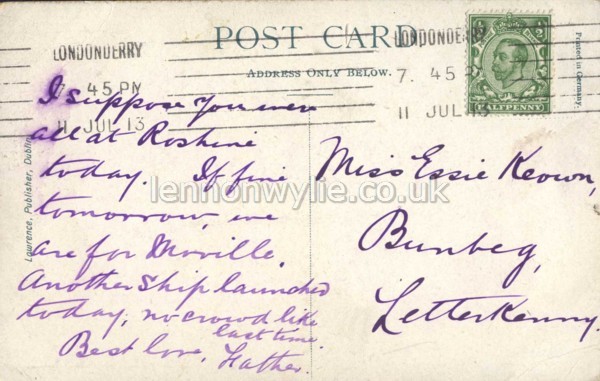 POST CARD
ADDRESS ONLY BELOW.
LONDONDERRY
7. 45 PM
11 JUL 13
LONDONDERRY
7. 45 P
11 JUL 13
HALFPENNY
Printed in Germany.
Lawrence, Publisher, Dublin
I suppose you were
all at Roshine
today. If fine
tomorrow, we
are for Moville.
Another ship launched
today, no crowd like
last time.
Best love, Father.
Miss Essie Keown,
Bunbeg,
Letterkenny.
lennonwylie.co.uk